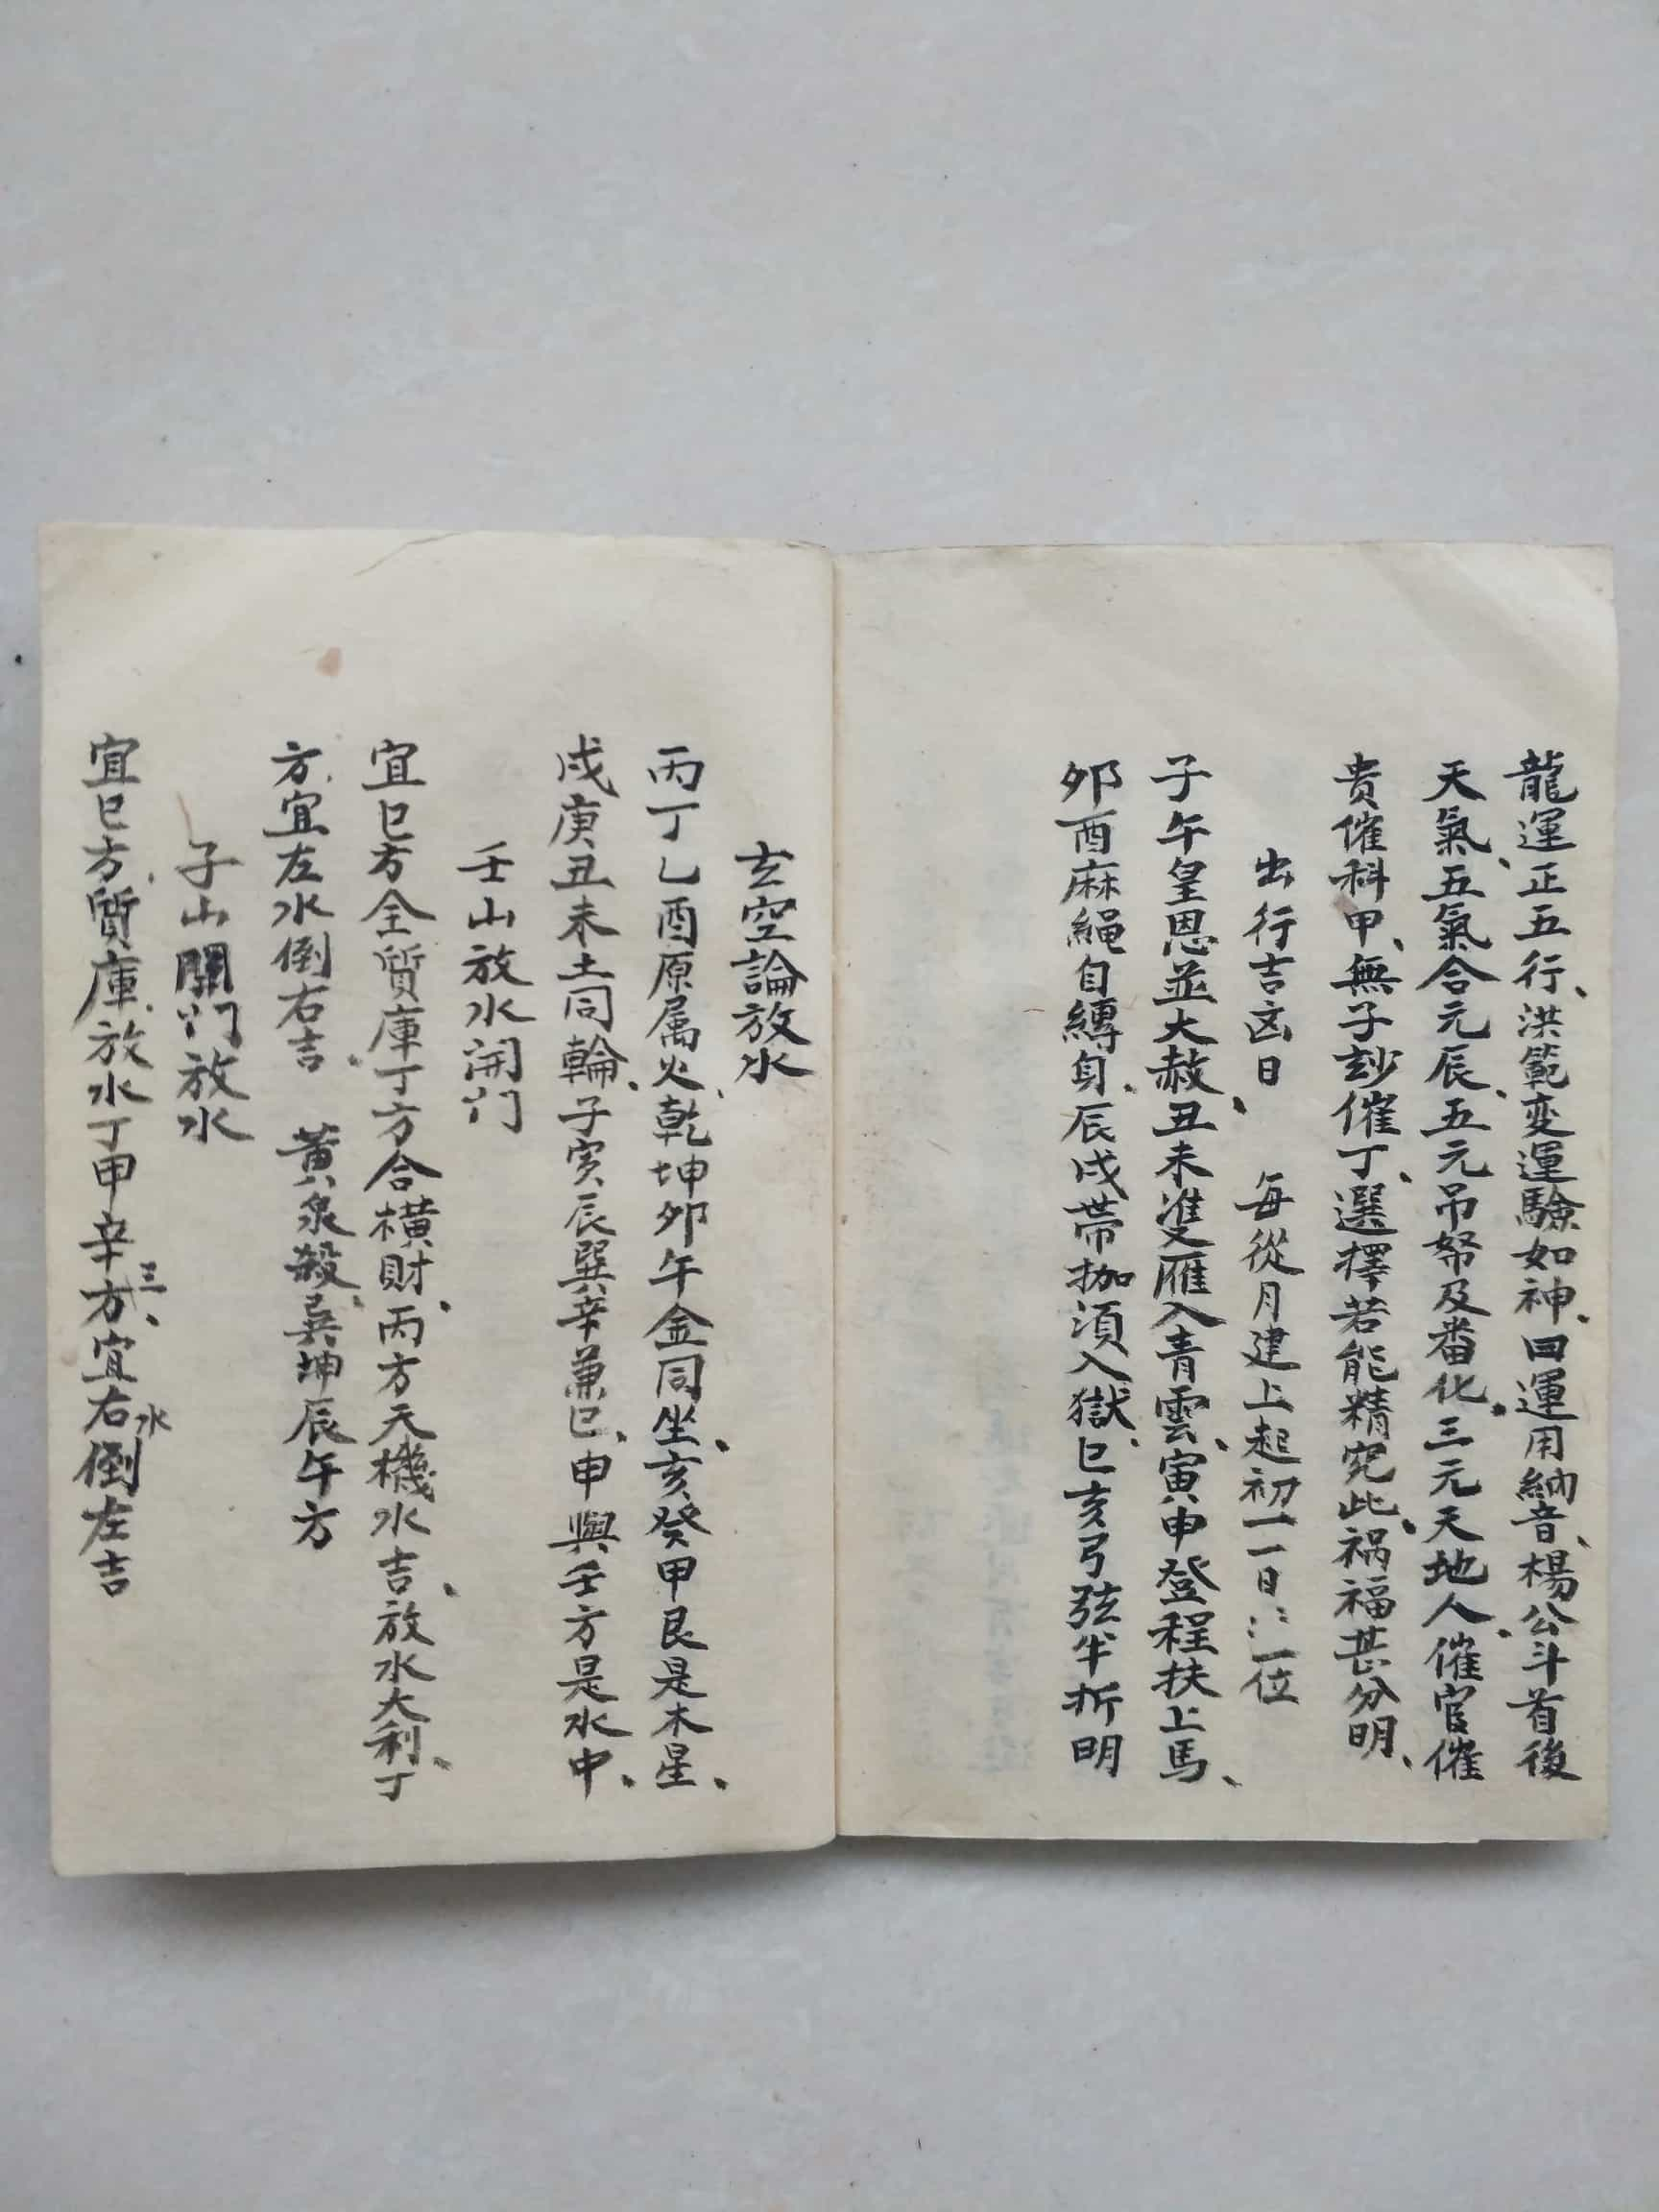 龍運正五行、洪範变運驗如神、囬運用納音、楊公斗首後
天氣、五氣合元辰、五元吊帑及番化、三元天地人、催官催
贵催科甲、無子玅催丁、選擇若能精究此、祸福甚分明、
出行吉凶日 每從月建上起初一一日一位
子午皇恩並大赦、丑未准双雁入青雲、寅申登程扶上馬、
夘酉麻繩自縛身、辰戌帶枷須入獄、巳亥弓弦半折明
玄空論放水
丙丁乙酉原属火、乾坤夘午金同坐、亥癸甲艮是木星、
戌庚丑未土同輪、子寅辰巽辛兼巳、申與壬方是水中、
壬山放水開门
宜巳方全質庫丁方合横財、丙方天機水吉、放水大利、丁
方、宜左水倒右吉、 黄泉殺、巽坤辰午方
子山開门放水
宜巳方、質庫、放水丁甲辛三方、宜右水倒左吉